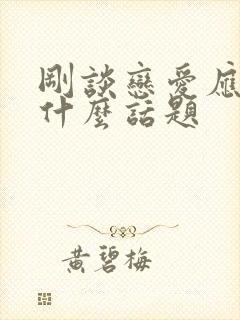 剛談戀愛應
什麼話題
黃碧梅